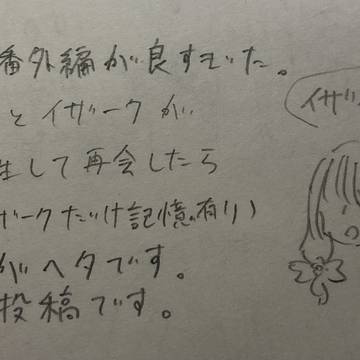 番外編が良すぎた。
とイザークが
生して再会したら
ザークだけ記憶有り)
がヘタです。
投稿です。
イザッ